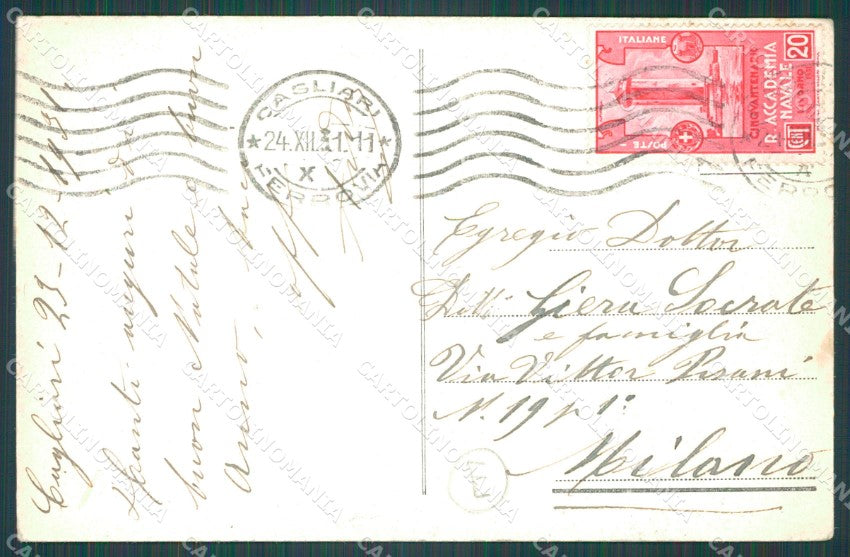 Cagliari 23-12-1931
auguri di
buon Natale e buon
anno,
CAGLIARI
24.XII.31.11
X
FERROVIA
ITALIANE
POSTE
CINQVANTENARIO
R. ACCADEMIA
NAVALE
20
Egregio Dottor
Dott. Giera Socrate
e famiglia
Via Vittor Pisani
N. 19 p 1°
Milano
CARTOLINOMANIA